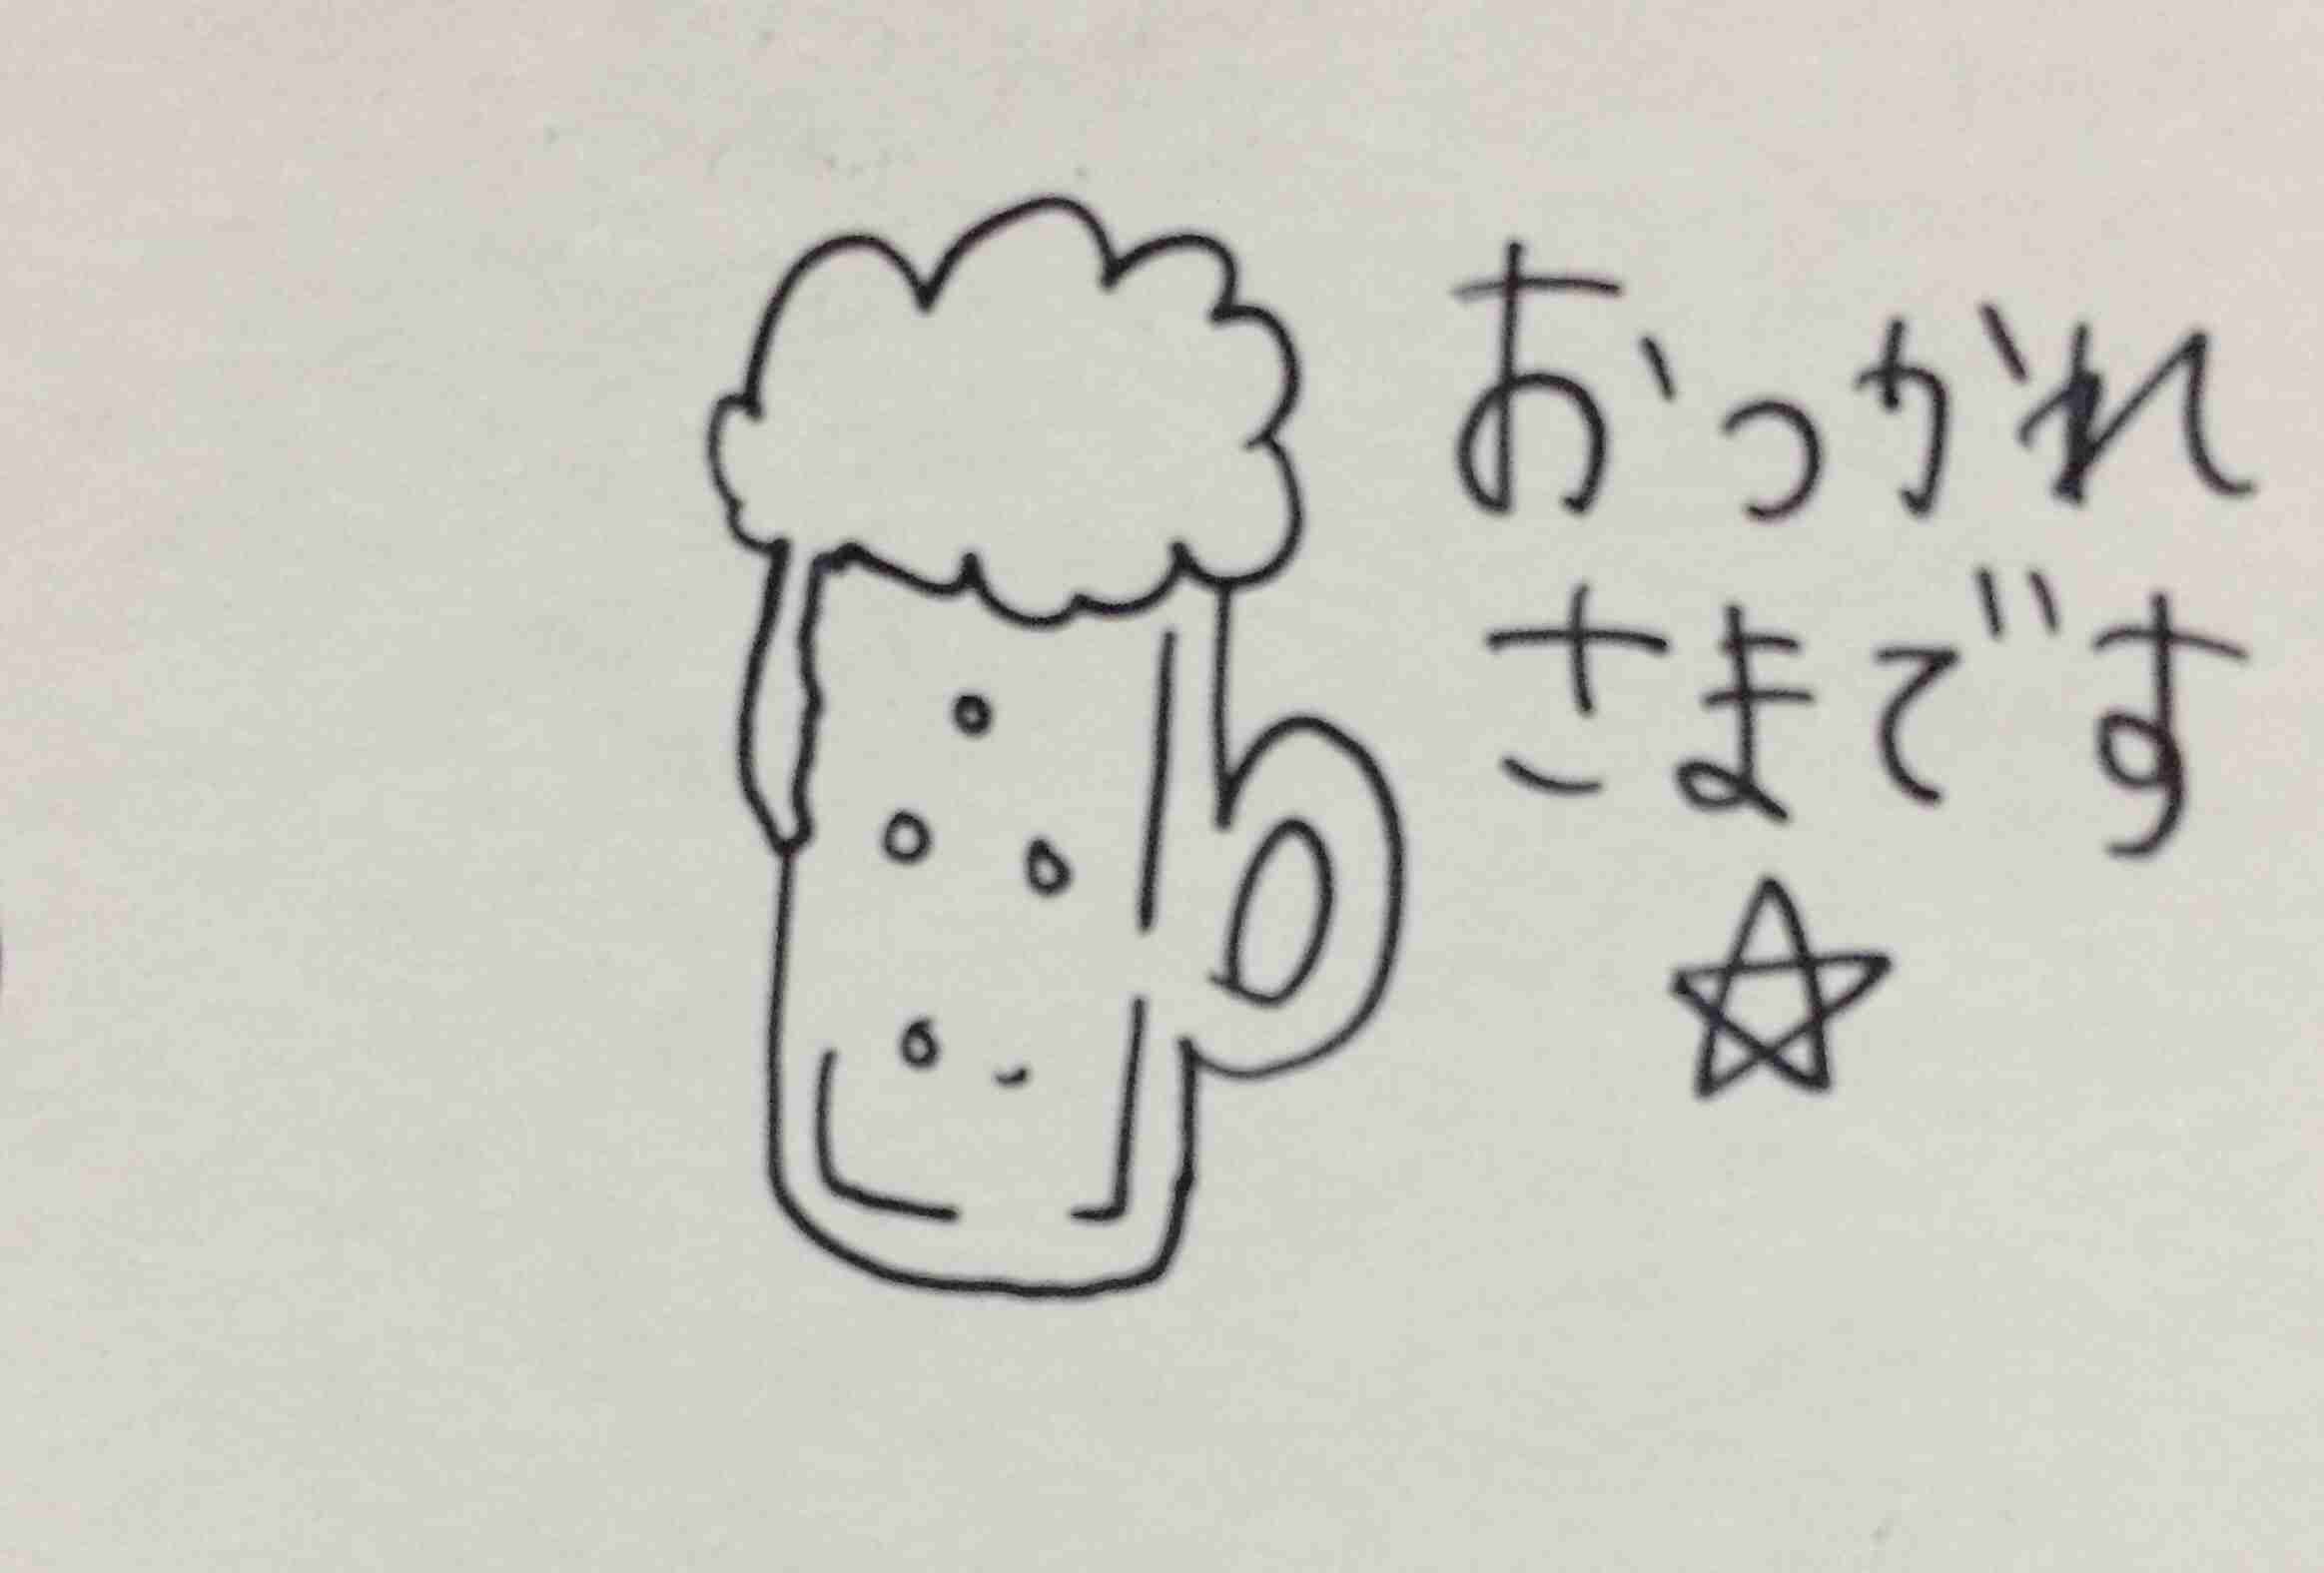 おつかれ
さまです
☆